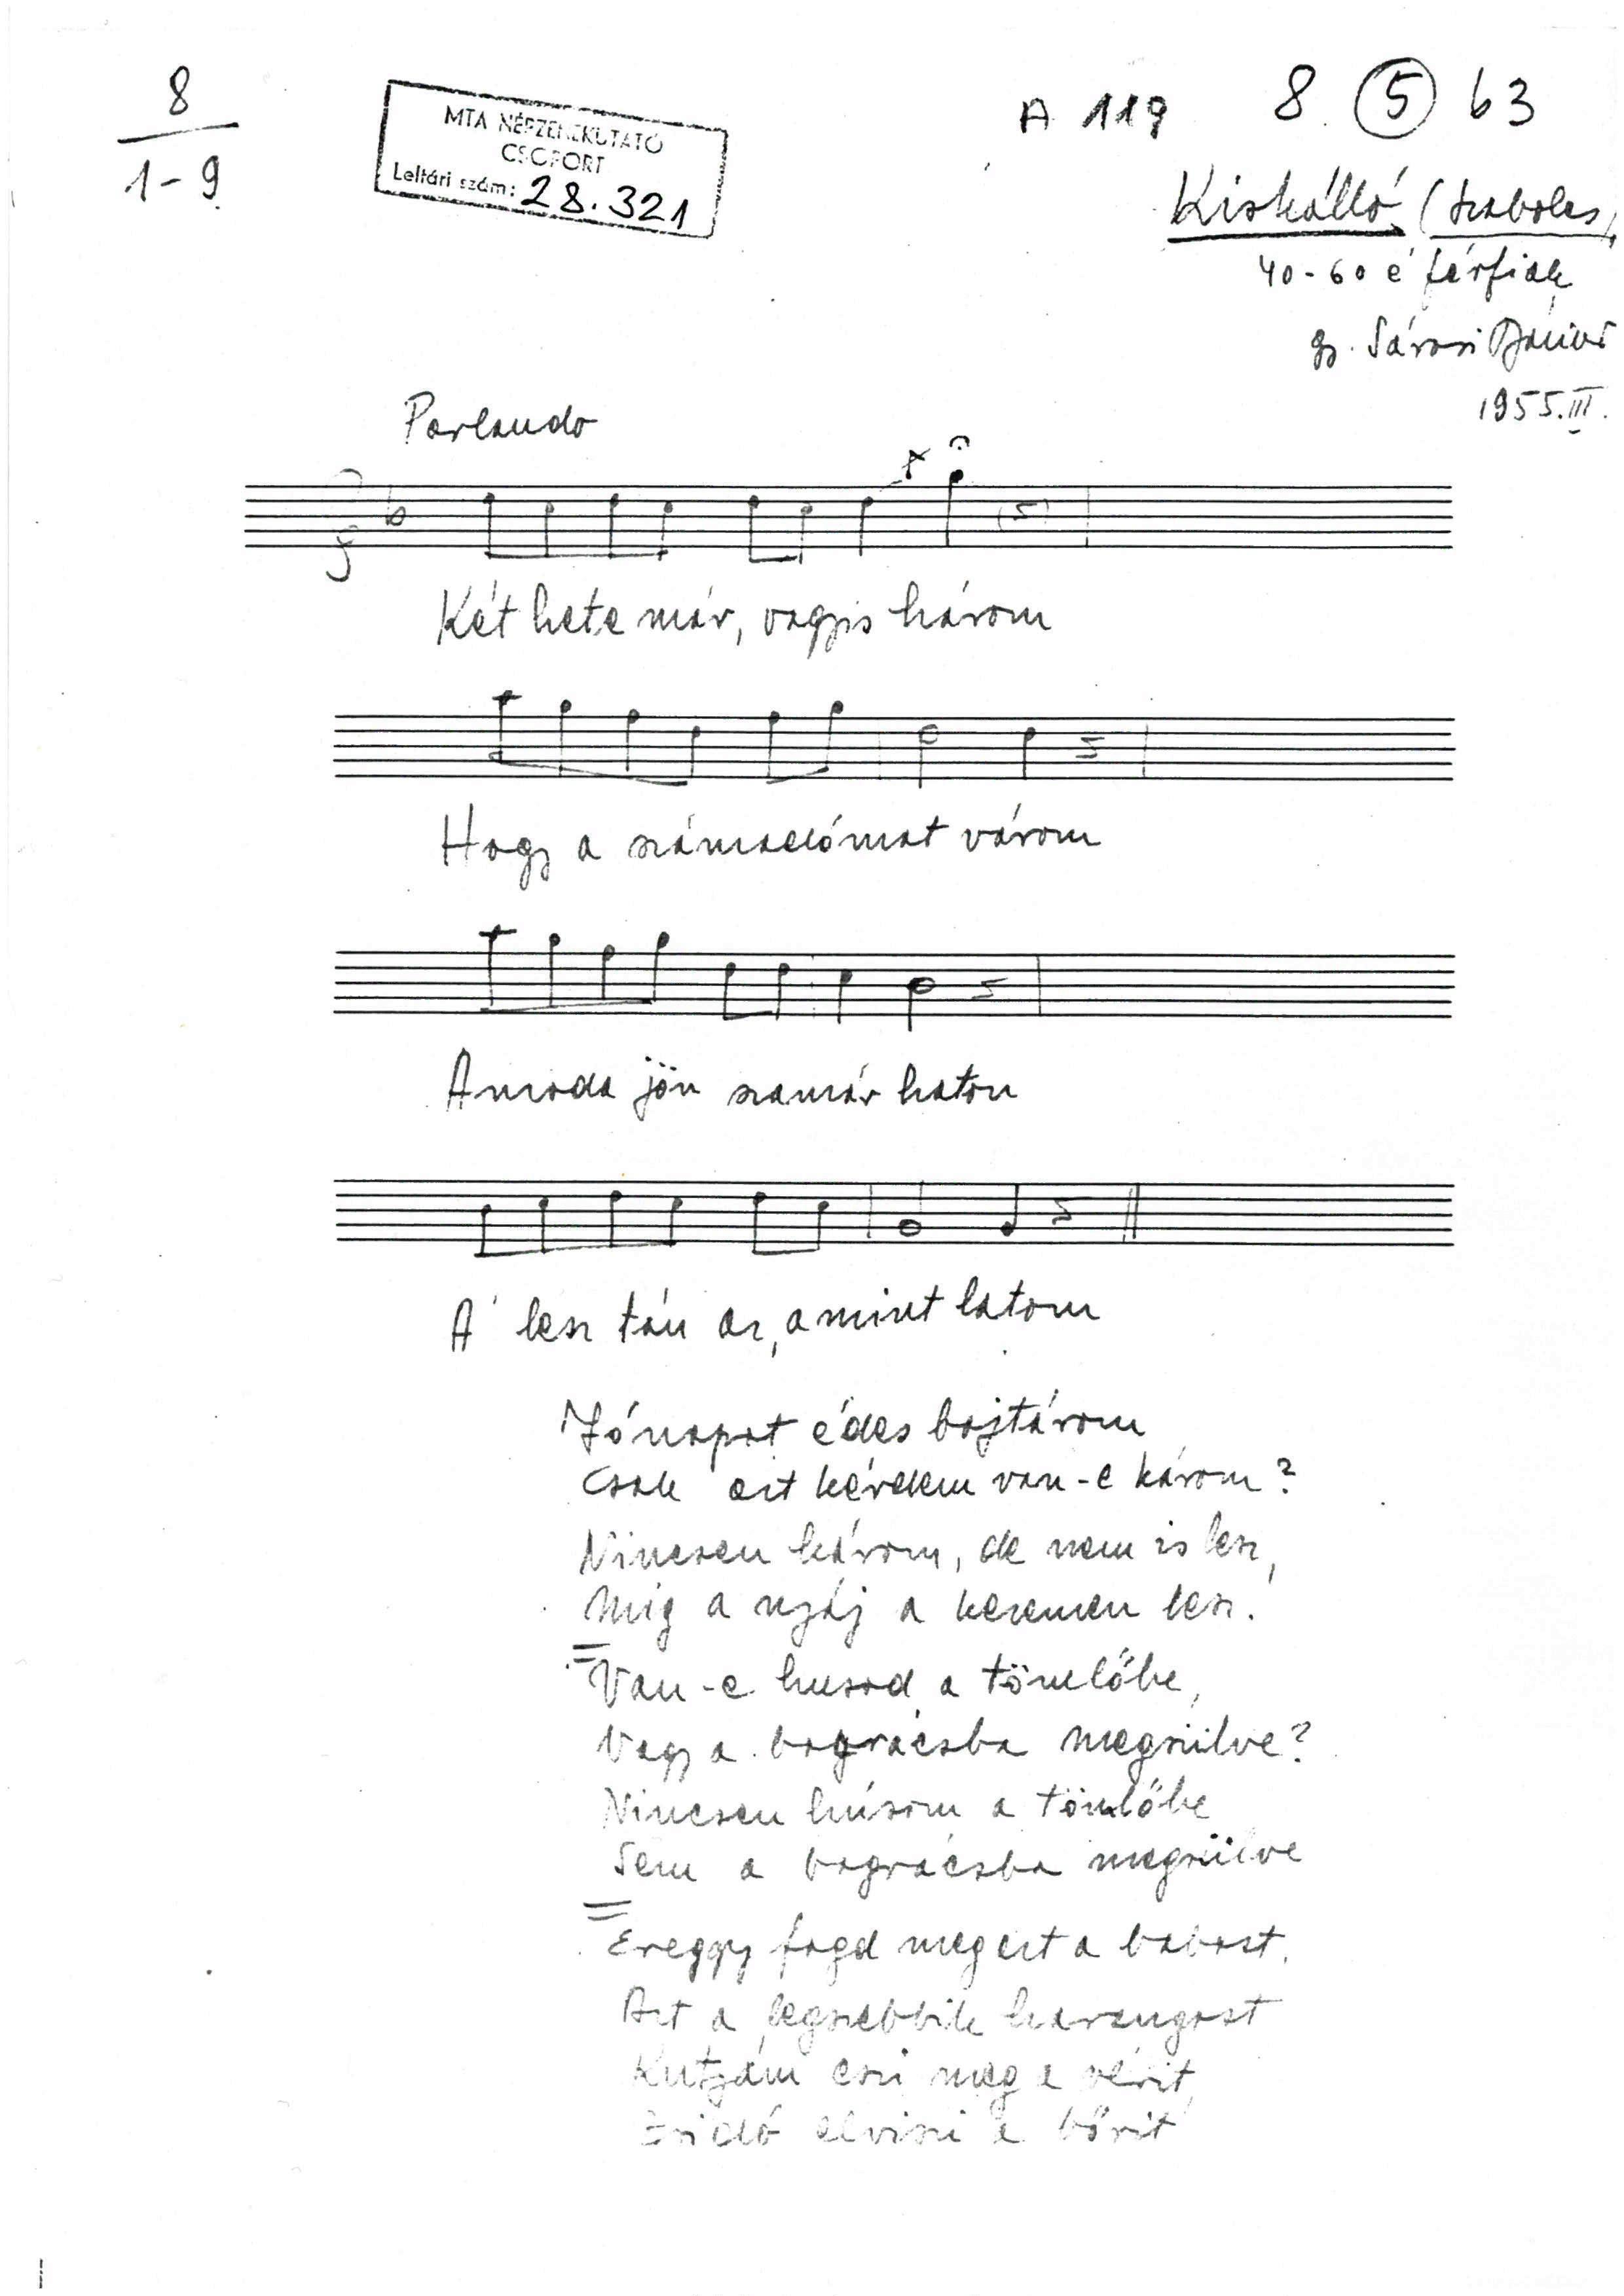 8
1-9
MTA NÉPZENEKUTATÓ
CSOPORT
Leltári szám: 28.321
A 119 8. 5 63
Kiskálló (Szabolcs)
40-60 é férfiak
gy. Sárosi Bálint
1955.III.
Parlando
Két hete már, vagyis három
Hogy a számadómat várom
Amoda jön szamár háton
A' lesz tán az, amint látom
Jónapot édes bojtárom
Csak azt kérdem van-e károm?
Nincsen károm, de nem is lesz,
Míg a nyáj a kezemen lesz.
Van-e husod a tömlőbe,
Vagy a bográcsba megsülve?
Nincsen húsom a tömlőbe
Sem a bográcsba megsülve
Ereggy fogd meg ezt a babost,
Azt a legszebbik harangost
Kutyám eszi meg a vérit,
Zsidó elviszi a bőrit